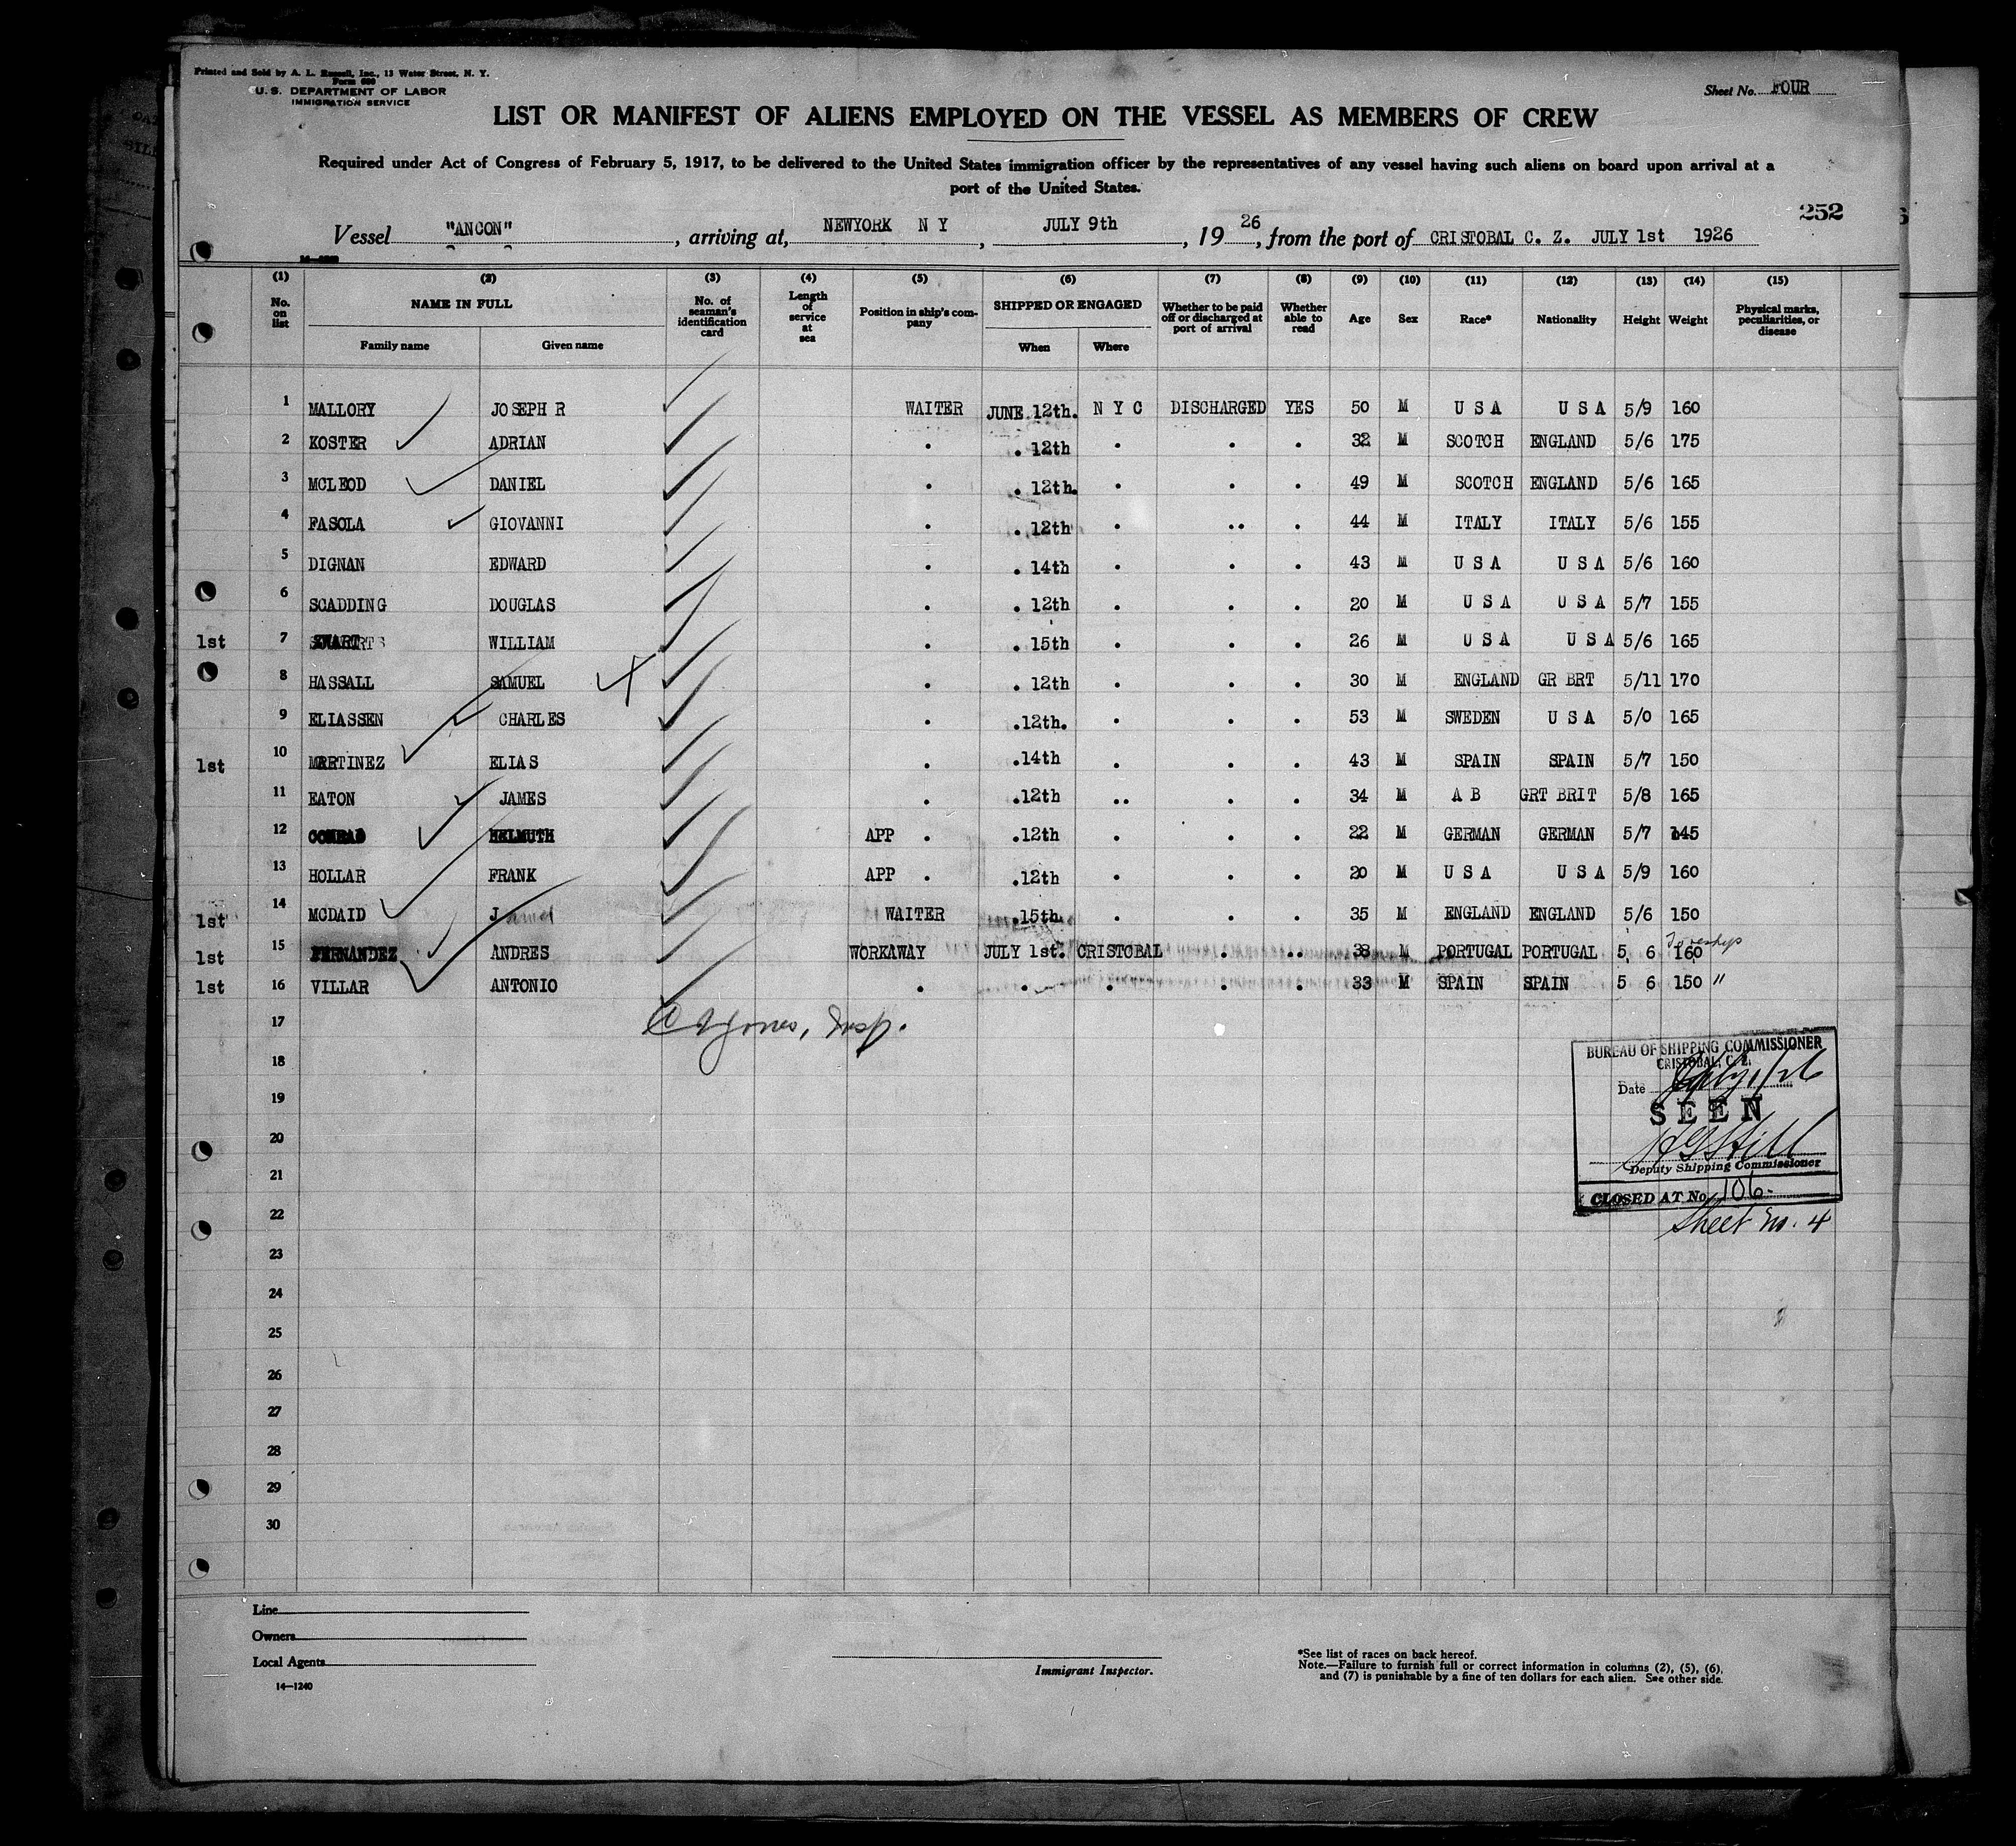 Printed and Sold by A. L. Russell, Inc., 13 Water Street, N. Y.
Form 680
U. S. DEPARTMENT OF LABOR
IMMIGRATION SERVICE
Sheet No. FOUR
LIST OR MANIFEST OF ALIENS EMPLOYED ON THE VESSEL AS MEMBERS OF CREW
Required under Act of Congress of February 5, 1917, to be delivered to the United States immigration officer by the representatives of any vessel having such aliens on board upon arrival at a
port of the United States.
252
Vessel "ANCON", arriving at, NEWYORK N Y, JULY 9th, 1926, from the port of CRISTOBAL C. Z. JULY 1st 1926
(1) (2) (3) (4) (5) (6) (7) (8) (9) (10) (11) (12) (13) (14) (15)
No. on list NAME IN FULL Family name Given name No. of seaman's identification card Length of service at sea Position in ship's company SHIPPED OR ENGAGED When Where Whether to be paid off or discharged at port of arrival Whether able to read Age Sex Race* Nationality Height Weight Physical marks, peculiarities, or disease
1 MALLORY JOSEPH R WAITER JUNE 12th. N Y C DISCHARGED YES 50 M U S A U S A 5/9 160
2 KOSTER ADRIAN . . 12th . . . 32 M SCOTCH ENGLAND 5/6 175
3 MCLEOD DANIEL . . 12th. . . . 49 M SCOTCH ENGLAND 5/6 165
4 FASOLA GIOVANNI . . 12th . .. . 44 M ITALY ITALY 5/6 155
5 DIGNAN EDWARD . . 14th . . . 43 M U S A U S A 5/6 160
6 SCADDING DOUGLAS . . 12th . . . 20 M U S A U S A 5/7 155
1st 7 WILLIAM . . 15th . . . 26 M U S A U S A 5/6 165
8 HASSALL SAMUEL . . 12th . . . 30 M ENGLAND GR BRT 5/11 170
9 ELIASSEN CHARLES . .12th. . . . 53 M SWEDEN U S A 5/0 165
1st 10 MARTINEZ ELIAS . .14th . . . 43 M SPAIN SPAIN 5/7 150
11 EATON JAMES . .12th .. . . 34 M A B GRT BRIT 5/8 165
12 CONRAD HELMUTH APP . .12th . . . 22 M GERMAN GERMAN 5/7 145
13 HOLLAR FRANK APP . .12th . . . 20 M U S A U S A 5/9 160
1st 14 MCDAID James WAITER .15th . . . 35 M ENGLAND ENGLAND 5/6 150
1st 15 FERNANDEZ ANDRES WORKAWAY JULY 1st. CRISTOBAL . .. 38 M PORTUGAL PORTUGAL 5 6 160
1st 16 VILLAR ANTONIO . . . . . 33 M SPAIN SPAIN 5 6 150 "
17
Jones, Insp.
18
19
20
21
22
23
24
25
26
27
28
29
30
BUREAU OF SHIPPING COMMISSIONER
CRISTOBAL, C. Z.
Date July 1/26
SEEN
Hill
Deputy Shipping Commissioner
CLOSED AT No. 106.
Sheet No. 4
Line
Owners
Local Agents
14—1240
Immigrant Inspector.
*See list of races on back hereof.
Note.—Failure to furnish full or correct information in columns (2), (5), (6),
and (7) is punishable by a fine of ten dollars for each alien. See other side.